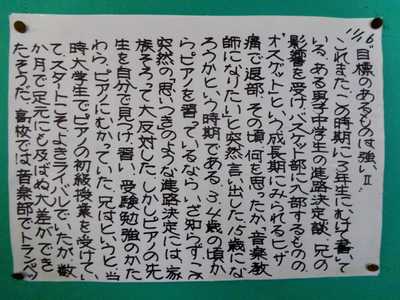 11/16
"目標のあるものは強い" II
これまた、この時期に3年生にむけて書いて
いる、ある男子中学生の進路決定談。兄の
影響を受けバスケット部に入部するものの、
オスグットという成長期にみられるヒザ
痛で退部。その頃何を思ったか「音楽教
師になりたい」と突然言い出した。15歳にな
ろうかという時期である。3、4歳の頃か
らピアノを習っているなら、いざ知らず、
突然の「思いつき」のような進路決定には、家
族そろって大反対した。しかしピアノの先
生を自分で見つけ、習い、受験勉強のかた
わら、ピアノにむかっていた。兄はというと当
時大学生でピアノの初級授業を受けてい
て、スタートこそよきライバルでいたが、数
か月で足元にも及ばぬ大差ができ
たそうだ。高校では音楽部でトランペッ